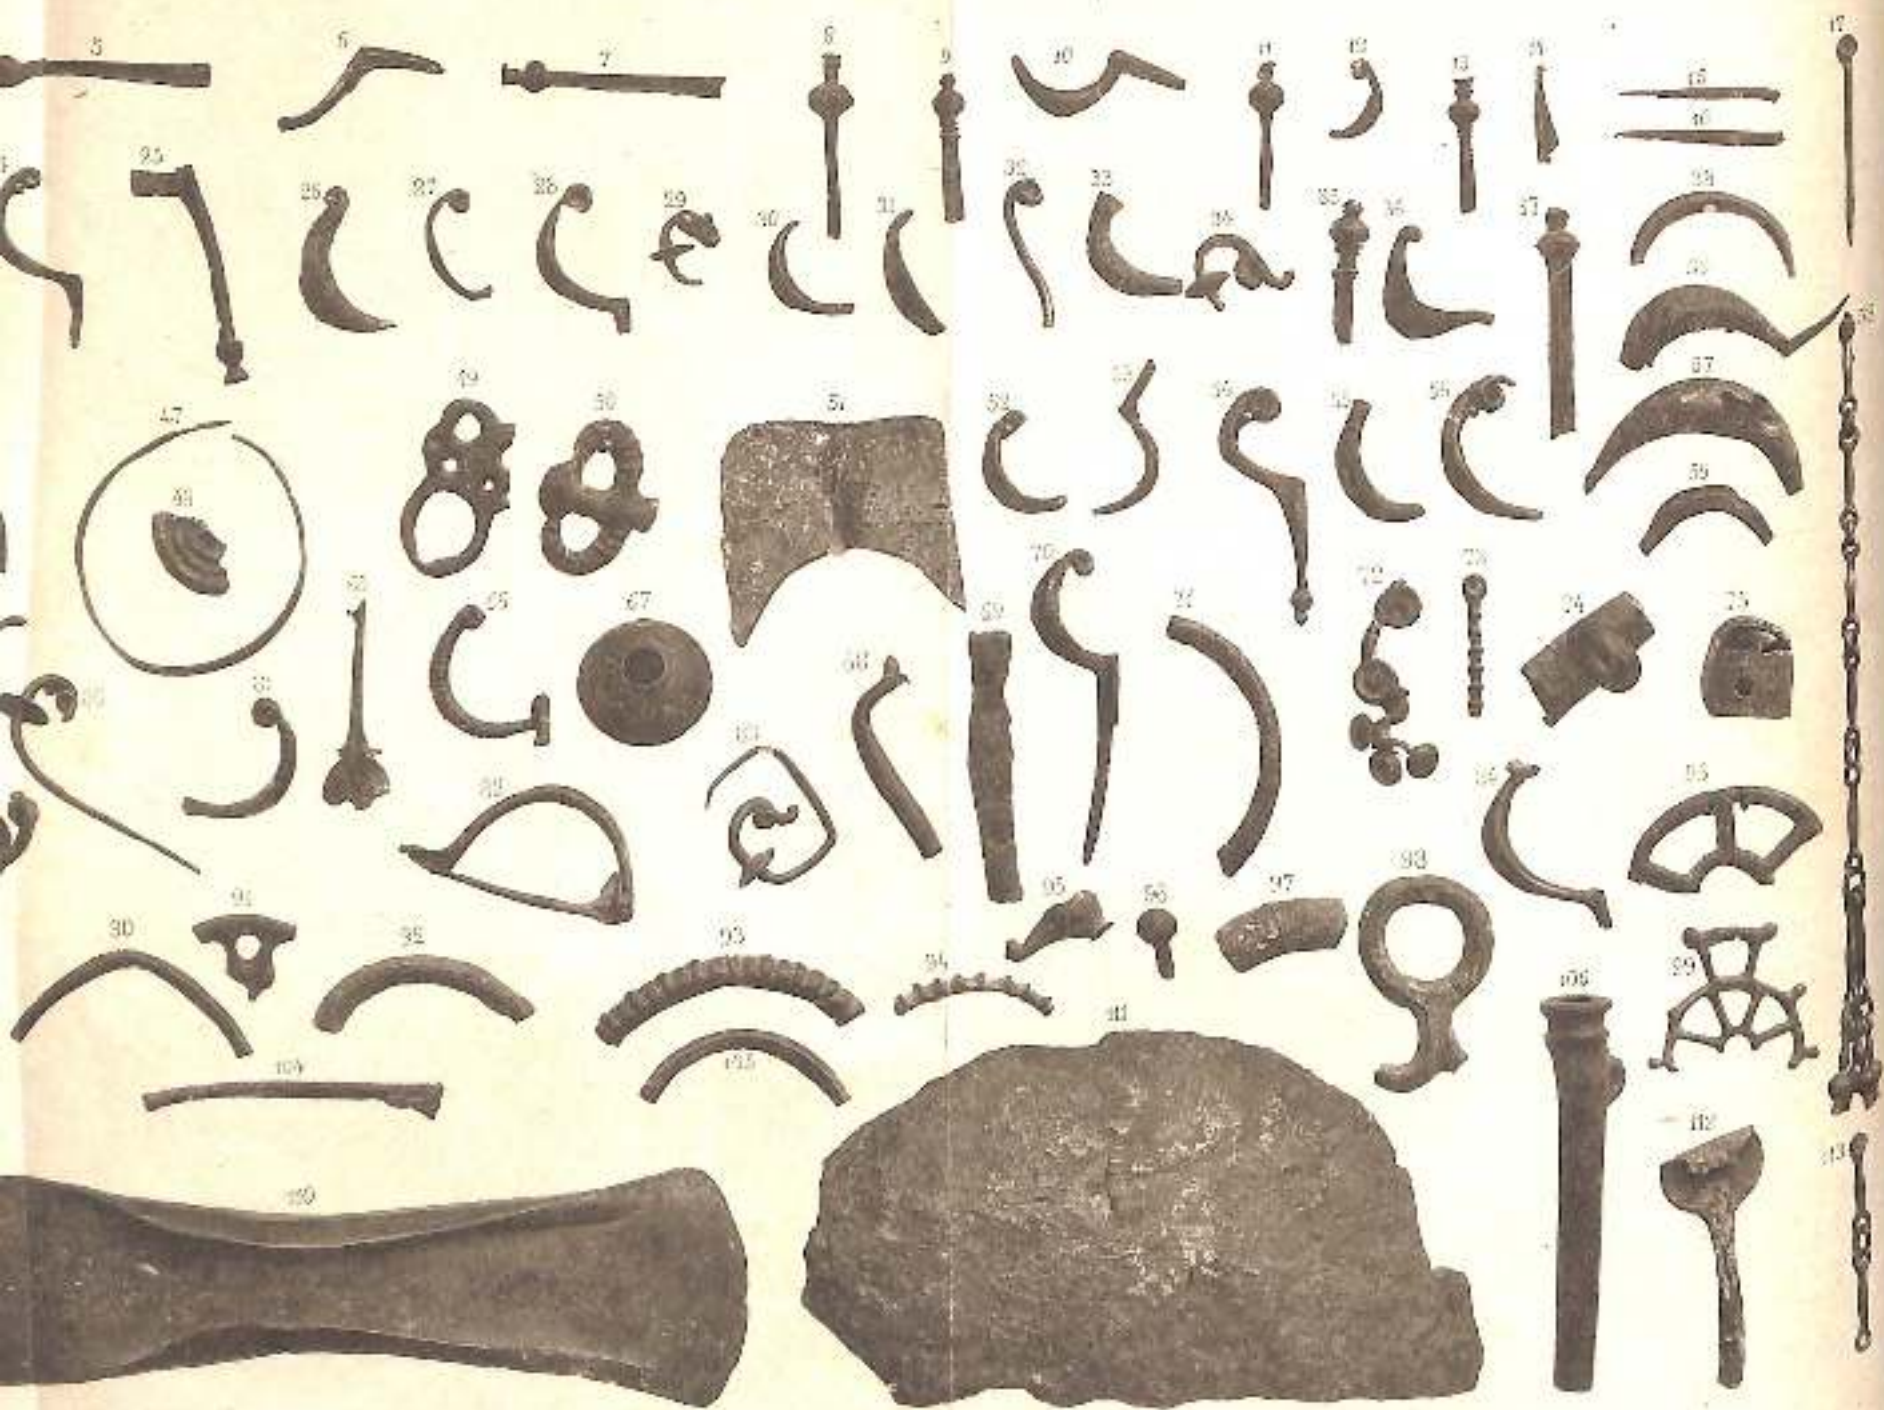 5
6
7
8
9
10
11
12
13
14
15
16
17
25
26
27
28
29
30
31
32
33
34
35
36
37
38
47
48
49
50
51
52
53
54
55
56
57
59
66
67
68
69
70
71
72
73
74
75
81
82
83
84
85
90
91
92
93
94
95
96
97
98
99
104
105
106
110
111
112
113